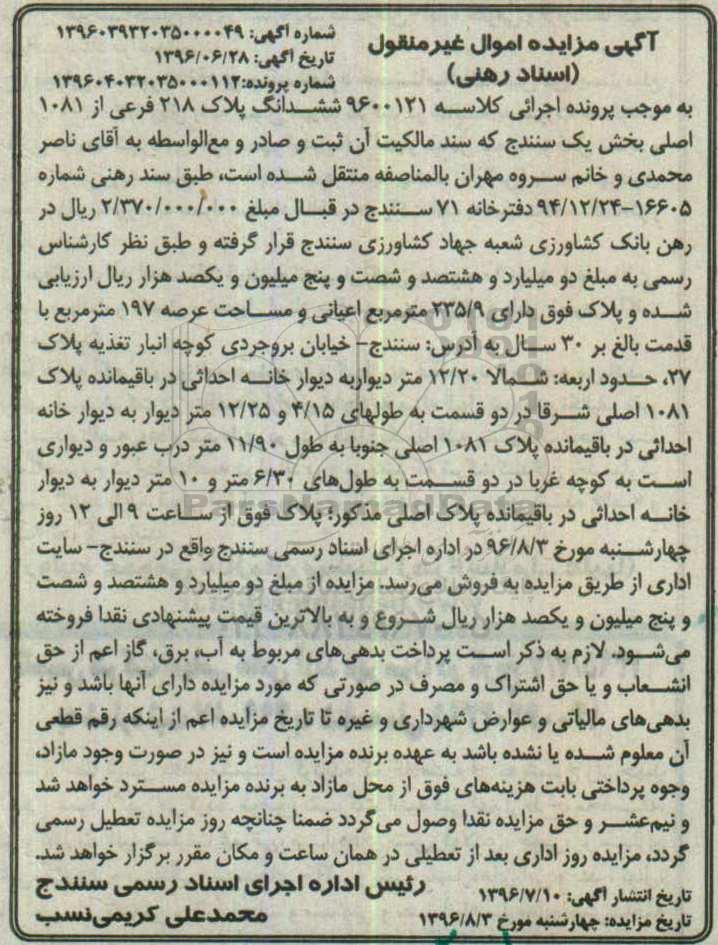 آگهی مزایده اموال غیرمنقول
(اسناد رهنی)
شماره آگهی: ۱۳۹۶۰۳۹۳۲۰۳۵۰۰۰۰۴۹
تاریخ آگهی: ۱۳۹۶/۰۶/۲۸
شماره پرونده: ۱۳۹۶۰۴۰۳۲۰۳۵۰۰۰۱۱۲
به موجب پرونده اجرائی کلاسه ۹۶۰۰۱۲۱ ششدانگ پلاک ۲۱۸ فرعی از ۱۰۸۱
اصلی بخش یک سنندج که سند مالکیت آن ثبت و صادر و مع‌الواسطه به آقای ناصر
محمدی و خانم سروه مهران بالمناصفه منتقل شده است، طبق سند رهنی شماره
۱۶۶۰۵-۹۴/۱۲/۲۴ دفترخانه ۷۱ سنندج در قبال مبلغ ۲/۳۷۰/۰۰۰/۰۰۰ ریال در
رهن بانک کشاورزی شعبه جهاد کشاورزی سنندج قرار گرفته و طبق نظر کارشناس
رسمی به مبلغ دو میلیارد و هشتصد و شصت و پنج میلیون و یکصد هزار ریال ارزیابی
شده و پلاک فوق دارای ۲۳۵/۹ مترمربع اعیانی و مساحت عرصه ۱۹۷ مترمربع با
قدمت بالغ بر ۳۰ سال به آدرس: سنندج- خیابان بروجردی کوچه انبار تغذیه پلاک
۲۷، حدود اربعه: شمالا ۱۲/۲۰ متر دیواربه دیوار خانه احداثی در باقیمانده پلاک
۱۰۸۱ اصلی شرقا در دو قسمت به طولهای ۴/۱۵ و ۱۲/۲۵ متر دیوار به دیوار خانه
احداثی در باقیمانده پلاک ۱۰۸۱ اصلی جنوبا به طول ۱۱/۹۰ متر درب عبور و دیواری
است به کوچه غربا در دو قسمت به طول‌های ۶/۳۰ متر و ۱۰ متر دیوار به دیوار
خانه احداثی در باقیمانده پلاک اصلی مذکور؛ پلاک فوق از ساعت ۹ الی ۱۲ روز
چهارشنبه مورخ ۹۶/۸/۳ در اداره اجرای اسناد رسمی سنندج واقع در سنندج- سایت
اداری از طریق مزایده به فروش می‌رسد. مزایده از مبلغ دو میلیارد و هشتصد و شصت
و پنج میلیون و یکصد هزار ریال شروع و به بالاترین قیمت پیشنهادی نقدا فروخته
می‌شود. لازم به ذکر است پرداخت بدهی‌های مربوط به آب، برق، گاز اعم از حق
انشعاب و یا حق اشتراک و مصرف در صورتی که مورد مزایده دارای آنها باشد و نیز
بدهی‌های مالیاتی و عوارض شهرداری و غیره تا تاریخ مزایده اعم از اینکه رقم قطعی
آن معلوم شده یا نشده باشد به عهده برنده مزایده است و نیز در صورت وجود مازاد،
وجوه پرداختی بابت هزینه‌های فوق از محل مازاد به برنده مزایده مسترد خواهد شد
و نیم‌عشر و حق مزایده نقدا وصول می‌گردد ضمنا چنانچه روز مزایده تعطیل رسمی
گردد، مزایده روز اداری بعد از تعطیلی در همان ساعت و مکان مقرر برگزار خواهد شد.
تاریخ انتشار آگهی: ۱۳۹۶/۷/۱۰
تاریخ مزایده: چهارشنبه مورخ ۱۳۹۶/۸/۳
رئیس اداره اجرای اسناد رسمی سنندج
محمدعلی کریمی‌نسب
ParsNamadData